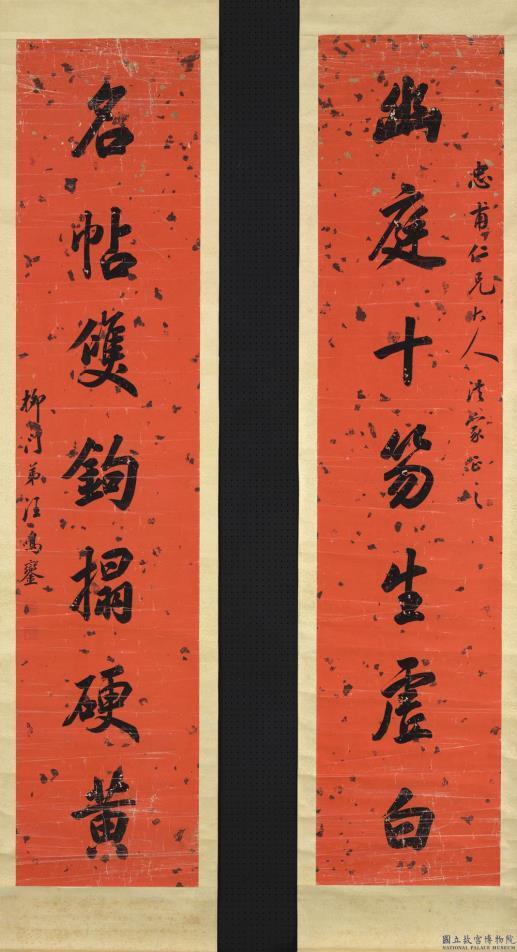 忠甫仁兄大人法家正之
幽庭十笏生虛白
名帖雙鉤搨硬黃
柳門弟汪鳴鑾
國立故宮博物院
NATIONAL PALACE MUSEUM